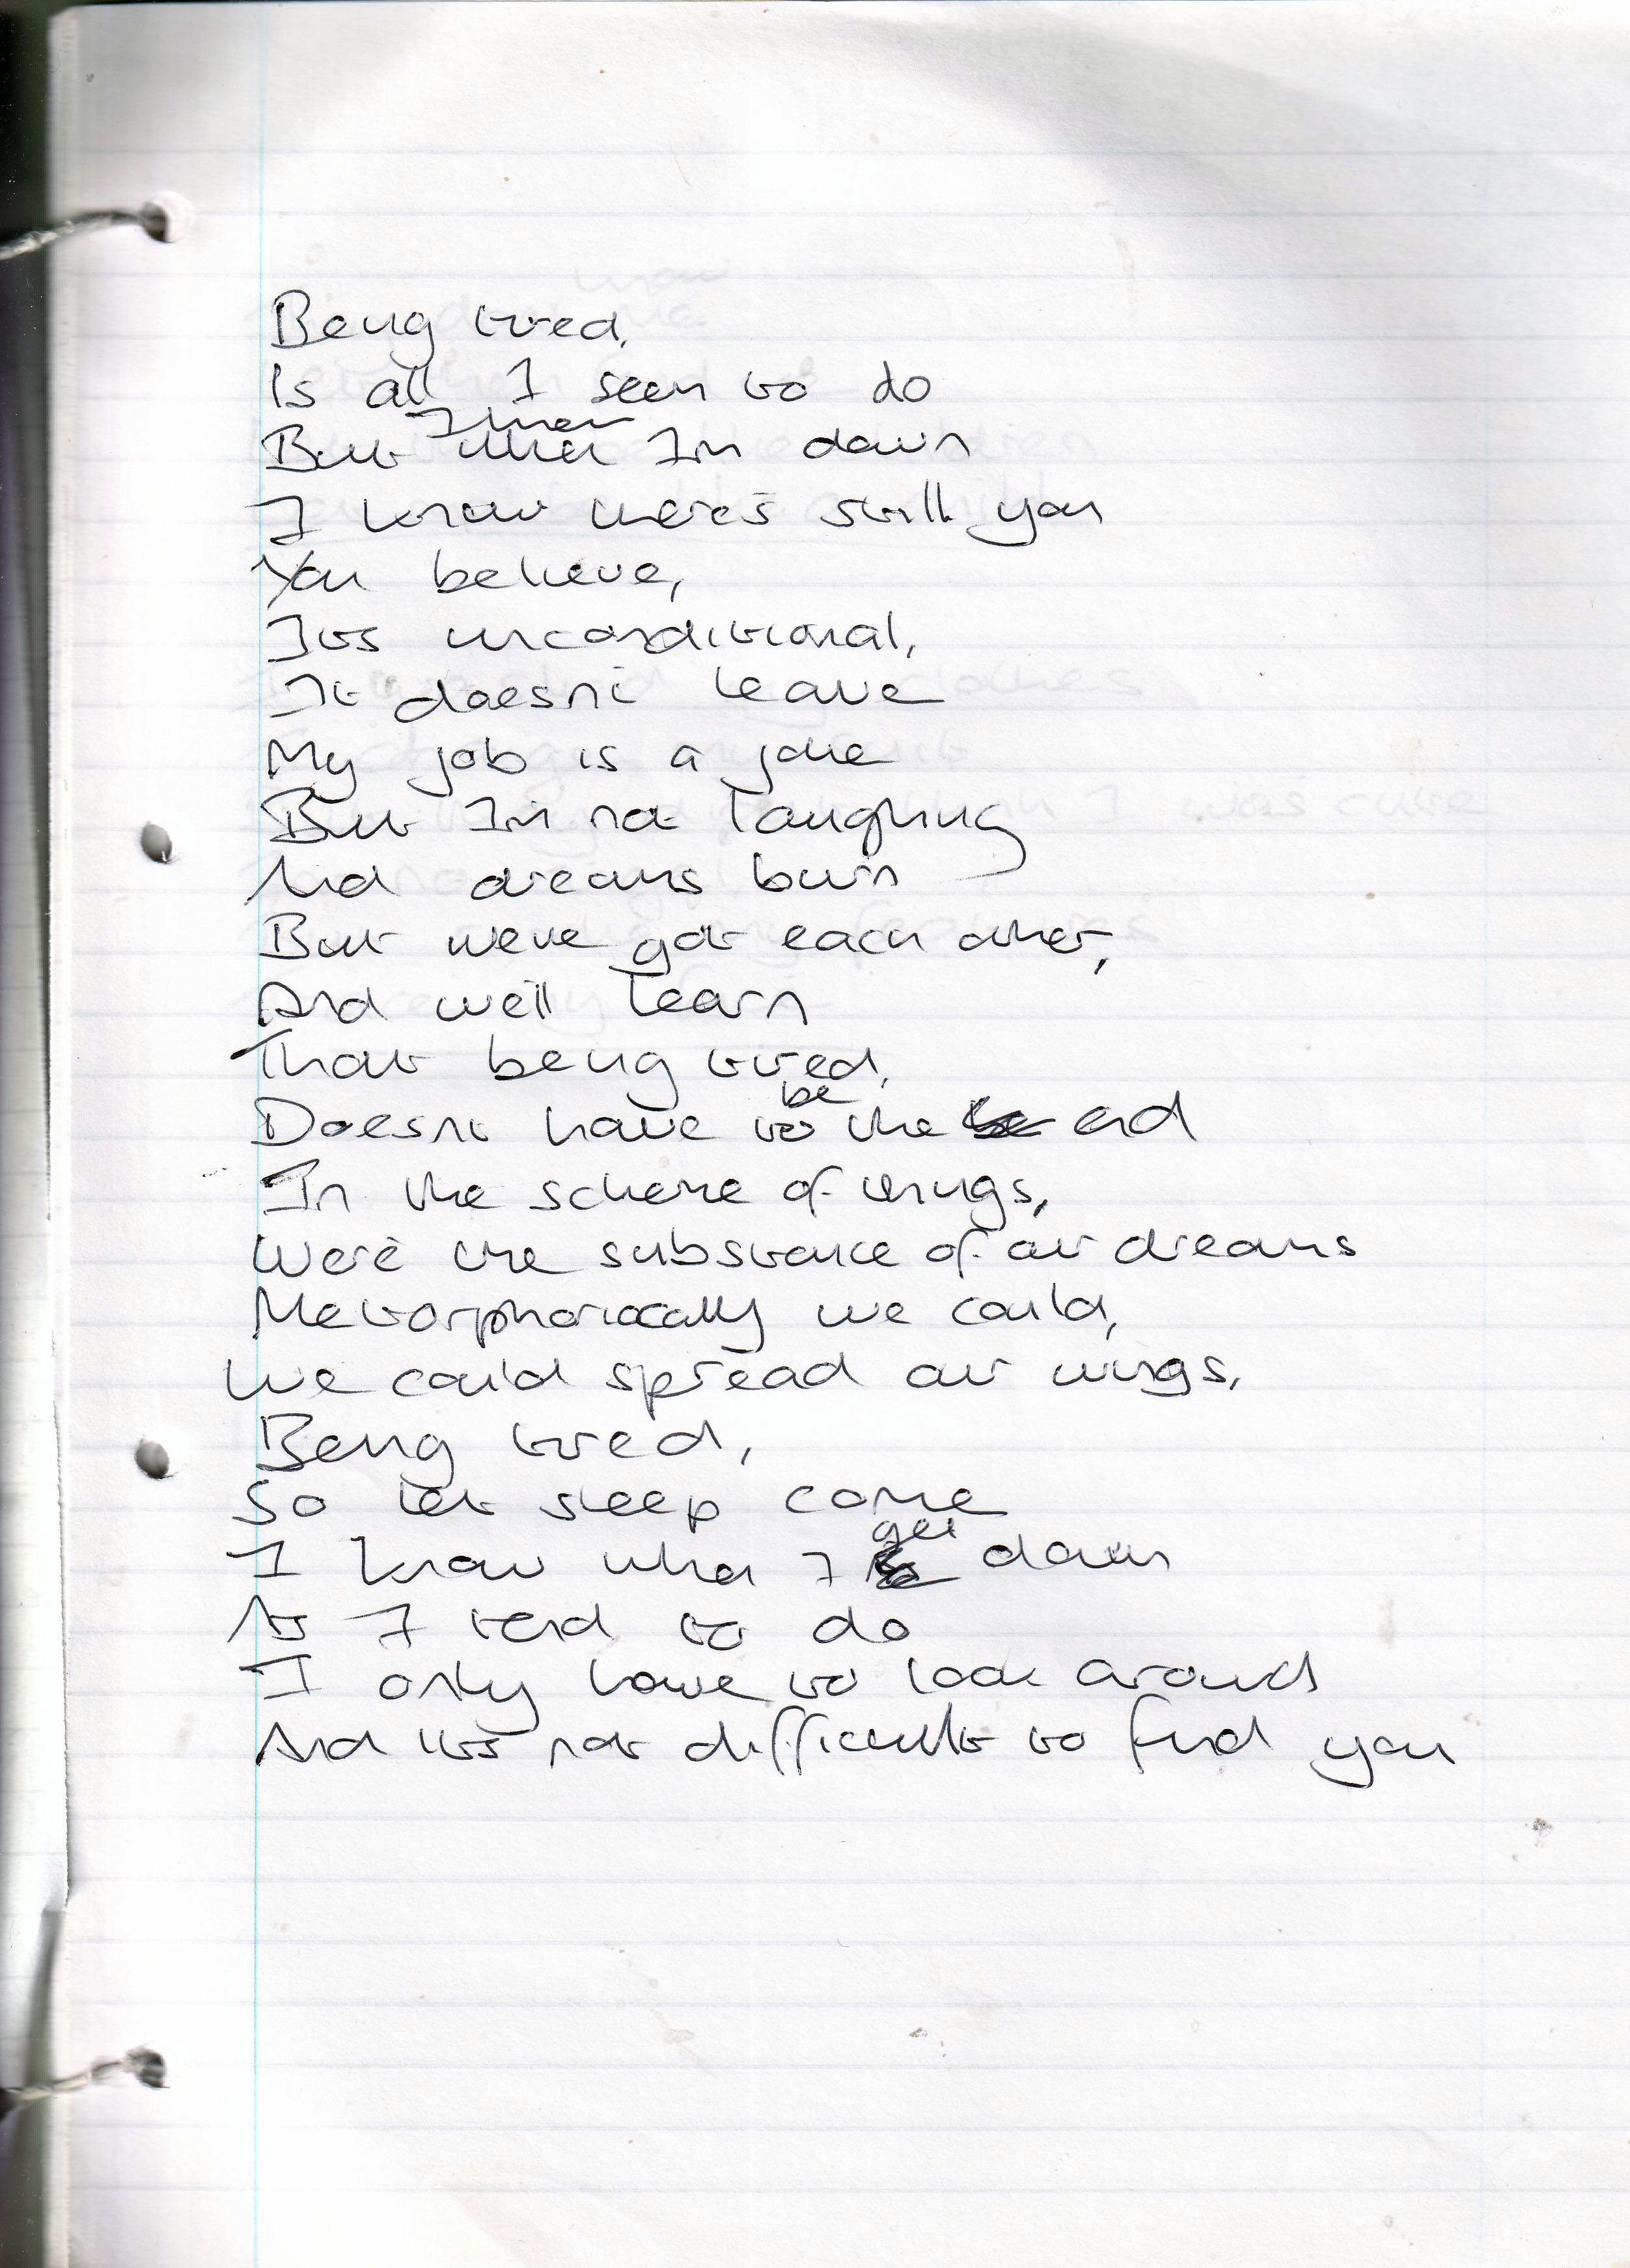 Being tired,
Is all I seem to do
But when I'm down
I know there's still you
You believe,
Its unconditional,
It doesn't leave
My job is a joke
But I'm not laughing
And dreams burn
But weve got each other,
And we'll learn
That being tired,
Doesnt have to be the end
In the scheme of things,
We're the substance of our dreams
Metorphorically we could,
We could spread our wings,
Being tired,
So let sleep come
I know when I get down
As I tend to do
I only have to look around
And its not difficult to find you